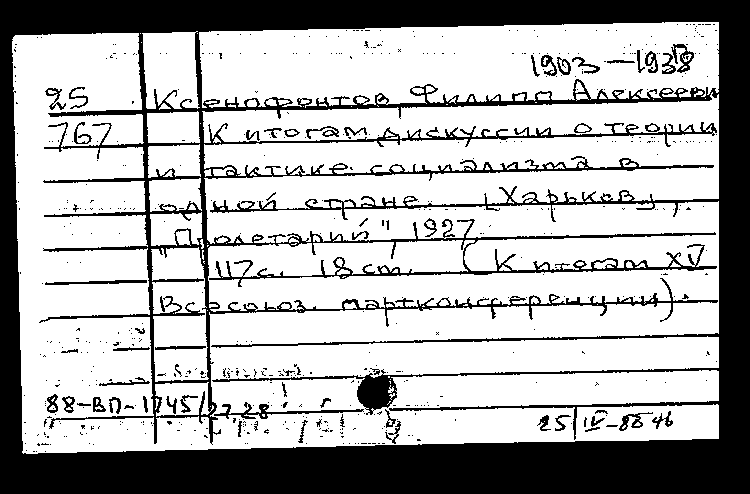 1903-1938
25 Ксенофонтов, Филипп Алексеевич
767 К итогам дискуссии о теории
и тактике социализма в
одной стране. [Харьков],
"Пролетарий", 1927.
117 с. 18 см. (К итогам XV
Всесоюз. партконференции).
88-ВП-1745/27.28
25/IV-88